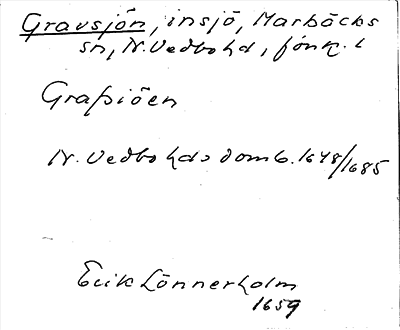 Gravsjön, insjö, Marbäcks
sn, N. Vedbo hd, Jönk. l
Grafsiöen
N. Vedbo hds domb. 1678/1685
Erik Lönnerholm
1659